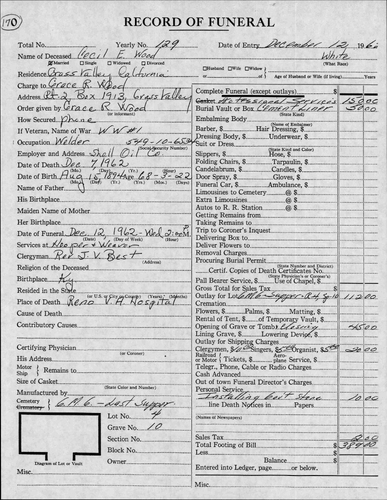 170
RECORD OF FUNERAL
Total No. Yearly No. 129 Date of Entry December 12, 1962
Name of Deceased Cecil E. Wood White
(What Race)
Married Single Widowed Divorced Husband Widow Wife
Residence Grass Valley California or Age of Husband or Wife (if living) Years
Charge to Grace R. Wood Complete Funeral (except outlays) $
Address Rt. 2 Box 1913, Grass Valley Professional Services 150.00
Order given by Grace R. Wood Burial Vault or Box Cement Liner 50.00
(or informant) (State Kind)
How Secured phone Embalming Body
Barber, $ Hair Dressing, $
If Veteran, Name of War WW#1 Dressing Body, $ Underwear, $
Occupation Welder 549-10-6534 Suit or Dress
(Social Security Number) (State Kind and Color)
Employer and Address Shell Oil Co. Slippers, $ Hose, $
Date of Death Dec 7, 1962 Folding Chairs, $ Tarpaulin, $
Candelabrum, $ Candles, $
Date of Birth Aug 15 1894 Age 68-3-22 Door Spray, $ Gloves, $
Name of Father Funeral Car, $ Ambulance, $
His Birthplace Limousines to Cemetery @ $
Extra Limousines @ $
Maiden Name of Mother Autos to R. R. Station @ $
Her Birthplace Getting Remains from
Taking Remains to
Date of Funeral Dec 12, 1962 - Wed. 2:00 P.M. Trip to Coroner's Inquest
Services at Hooper & Weaver Delivering Box to
Clergyman Rev. J. V. Best Deliver Flowers to
Removal Charges
Religion of the Deceased Procuring Burial Permit
(State Number and District)
Birthplace Ky. Certif. Copies of Death Certificates No.
Resided in the State Pall Bearer Service, $ Use of Chapel, $
Gross Total for Sales Tax
Place of Death Reno V. A. Hospital Outlay for Lot 112.00
Cause of Death Cremation
Flowers, $ Palms, $ Matting, $
Contributory Causes Rental of Tent, $ of Temporary Vault, $
Opening of Grave or Tomb Closing 45.00
Lining Grave, $ Lowering Device, $
Outlay for Shipping Charges
Certifying Physician Clergymen, $ Singers, $ Organist, $ 20.00
(or Coroner)
His Address Tickets, $ Service, $
Motor Ship Remains to Telegr., Phone, Cable or Radio Charges
Cash Advanced
Size of Casket Out of town Funeral Director's Charges
(State Color and Number) Personal Service
Manufactured by Installing Govt Stone 10.00
Cemetery G M G - Last Supper line Death Notices in Papers
Lot No. 4 (Names of Newspapers)
Grave No. 10
Section No. Sales Tax
Block No. Total Footing of Bill $
Less
Owner Balance $
Diagram of Lot or Vault Entered into Ledger, page or below.
Misc. Misc.